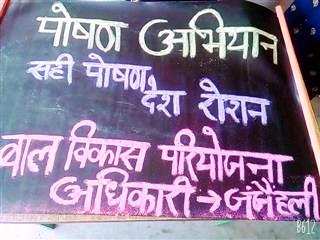 पोषण अभियान
सही पोषण
देश रोशन
बाल विकास परियोजना
अधिकारी → जंजैहली
B612